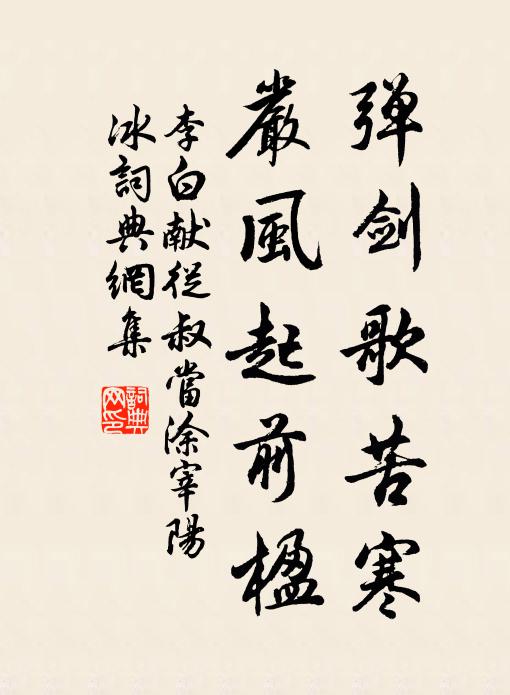 弹剑歌苦寒
嚴風起前楹
李白献從叔當涂宰陽
冰詞典網集
詞典
网印